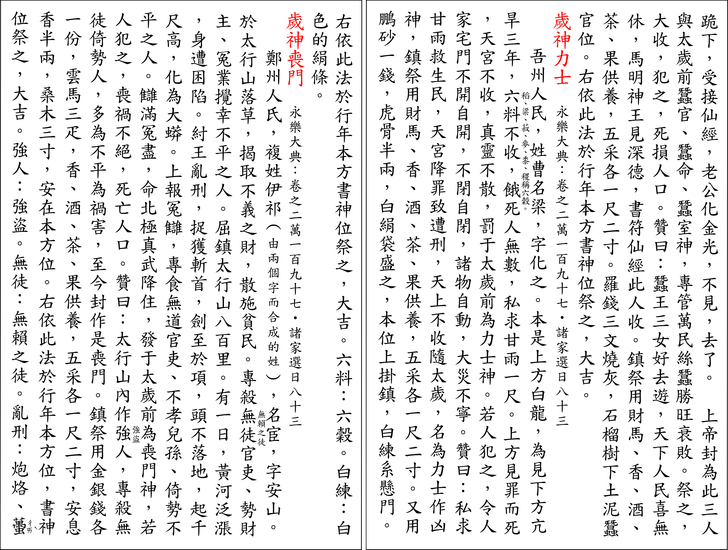 跪下，受接仙經，老公化金光，不見，去了。　上帝封為此三人
與太歲前蠶官、蠶命、蠶室神，專管萬民絲蠶勝旺衰敗。祭之，
大收，犯之，死損人口。贊曰：蠶王三女好去遊，天下人民喜無
休，馬明神王見深德，書符仙經此人收。鎮祭用財馬、香、酒、
茶、果供養，五采各一尺二寸。羅錢三文燒灰，石榴樹下土泥蠶
官位。右依此法於行年本方書神位祭之，大吉。
歲神力士　永樂大典：卷之二萬一百九十七‧諸家選日八十三
吾州人民，姓曹名梁，字化之。本是上方白龍，為見下方亢
稻、梁、菽、麥、黍、稷稱六穀。
旱三年，六料不收，餓死人無數，私求甘雨一尺。上方見罪而死
，天宮不收，真靈不散，罰于太歲前為力士神。若人犯之，令人
家宅門不開自開，不閉自閉，諸物自動，大災不寧。贊曰：私求
甘雨救生民，天宮降罪致遭刑，天上不收隨太歲，名為力士作凶
神，鎮祭用財馬、香、酒、茶、果供養，五采各一尺二寸。又用
鵬砂一錢，虎骨半兩，白絹袋盛之，本位上掛鎮，白練系懸門。
右依此法於行年本方書神位祭之，大吉。六料：六穀。白練：白
色的絹條。
歲神喪門　永樂大典：卷之二萬一百九十七‧諸家選日八十三
鄭州人氏，複姓伊祁（由兩個字而合成的姓），名宦，字安山。
無賴之徒
於太行山落草，揭取不義之財，散施貧民。專殺無徒官吏、勢財
主、冤業攪幸不平之人。屈鎮太行山八百里。有一日，黃河泛漲
，身遭困陷。紂王亂刑，捉獲斬首，劍至於項，頭不落地，起千
尺高，化為大蟒。上報冤讎，專食無道官吏、不孝兒孫、倚勢不
平之人。讎滿冤盡，命北極真武降住，發于太歲前為喪門神，若
強盜
人犯之，喪禍不絕，死亡人口。贊曰：太行山內作強人，專殺無
徒倚勢人，多為不平為禍害，至今封作是喪門。鎮祭用金銀錢各
一份，雲馬三疋，香、酒、茶、果供養，五采各一尺二寸，安息
香半兩，桑木三寸，安在本方位。右依此法於行年本方位，書神
位祭之，大吉。強人：強盜。無徒：無賴之徒。亂刑：炮烙、蠆